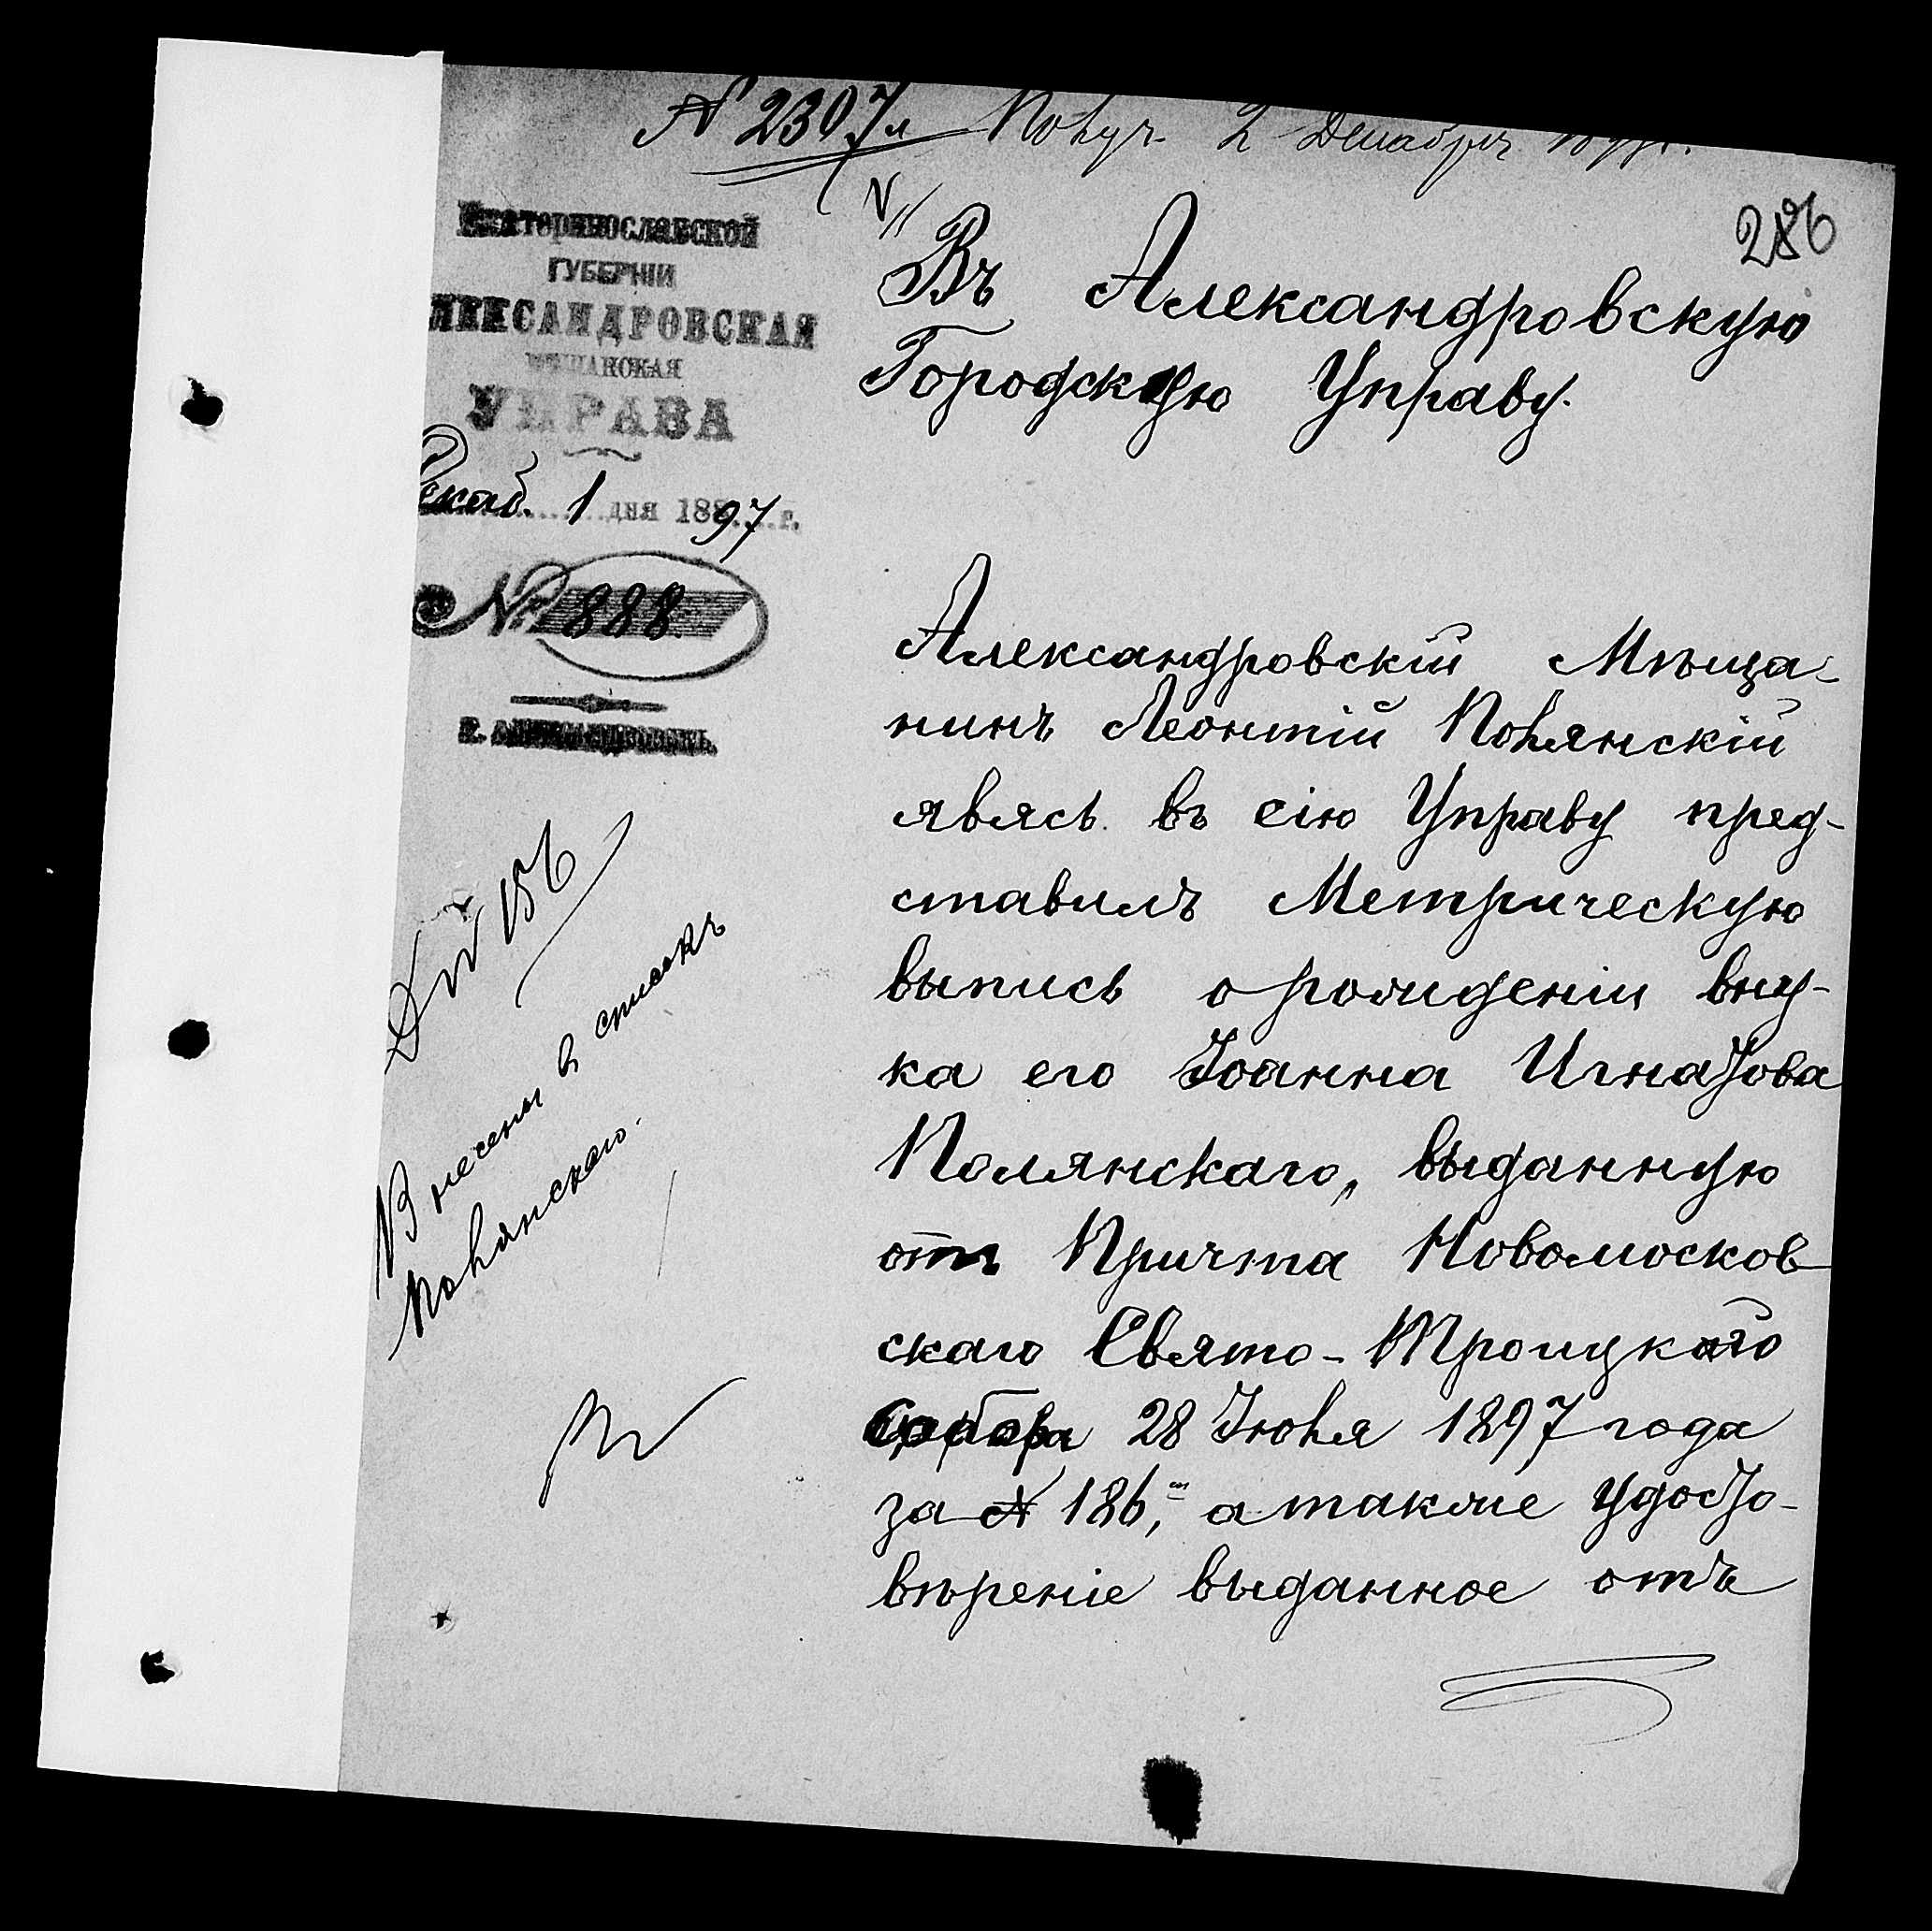 № 2307 Получ. 2 Декабря 1897 г.
286
Екатеринославской
ГУБЕРНІИ
АЛЕКСАНДРОВСКАЯ
МѢЩАНСКАЯ
УПРАВА
Декаб. 1 дня 188 97 г.
№ 888
г. Александровскъ.
Въ Александровскую
Городскую Управу.
Александровскій Мѣща-
нинъ Леонтій Полянскій
явясь въ сію Управу пред-
ставилъ Метрическую
выпись о рожденіи вну-
ка его Іоанна Игнатова
Полянскаго, выданную
отъ Причта Новомосков-
скаго Свято-Троицкаго
Собора 28 Іюля 1897 года
за № 186, а также удосто-
вѣреніе выданное отъ
№ 156
Внесены в списокъ
Полянскаго.